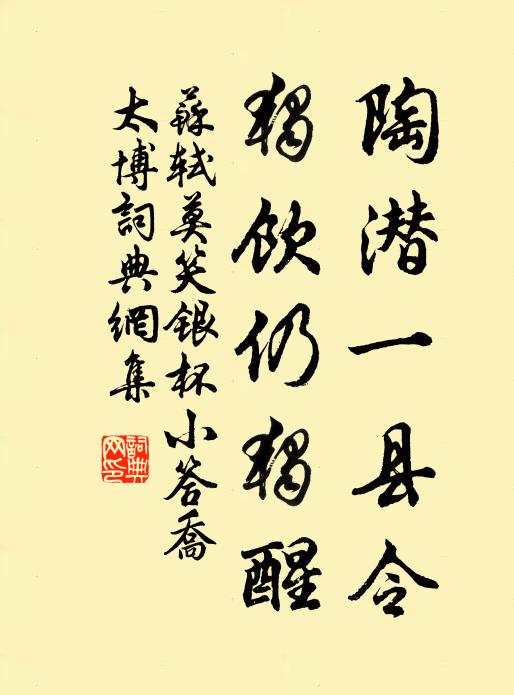 陶潜一县令
獨飲仍獨醒
蘇軾莫笑銀杯小答喬
太博詞典網集
詞典网印